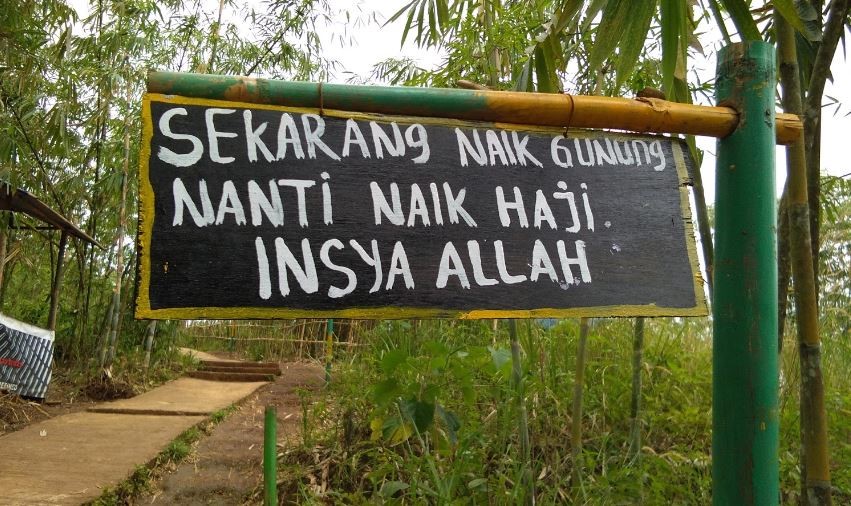 SEKARANg NAIK GUNUNg
NANTi NAIK HAji.
INSYA ALLAH